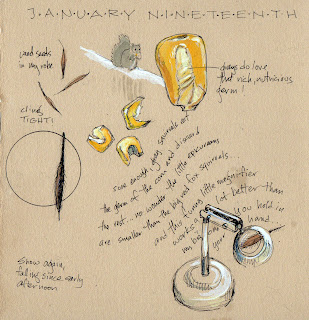 J·A·N·U·A·R·Y N·I·N·E·T·E·E·N·T·H
seed seeds
in my robe
cling
TIGHT!
always do love
that rich, nutricious
germ!
sure enough, gray squirrels eat
the germ of the corn and discard
the rest - no wonder the little epicureans
are smaller than the big red fox squirrels...
and this funny little magnifier
works a lot better than
one you hold in
your hand...
snow again,
falling since early
afternoon